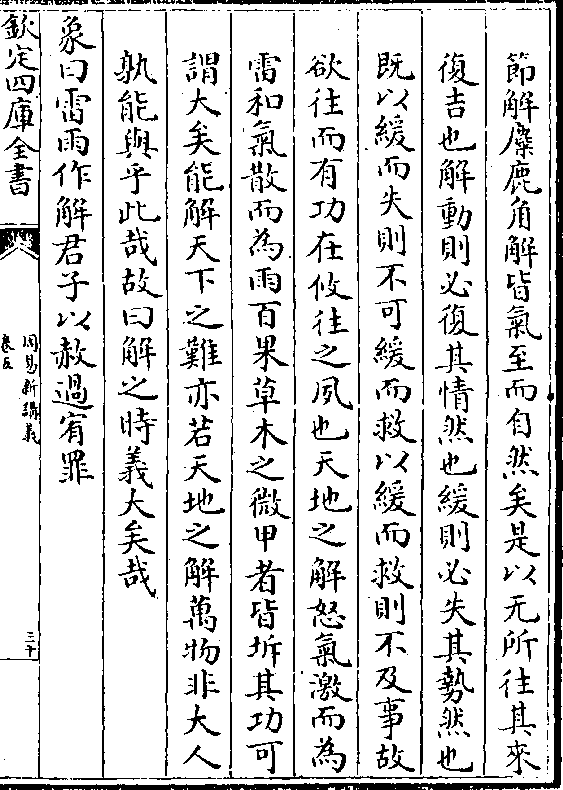 節解麋鹿角解皆氣至而自然矣是以无所往其來
復吉也解動則必復其情然也緩則必失其勢然也
既以緩而失則不可緩而救以緩而救則不及事故
欲往而有功在攸往之夙也天地之解怒氣激而為
雷和氣散而為雨百果草木之微甲者皆坼其功可
謂大矣能解天下之難亦若天地之解萬物非大人
孰能與乎此哉故曰解之時義大矣哉
象曰雷雨作解君子以赦過宥罪
欽定四庫全書
周易新講義
卷五
三十